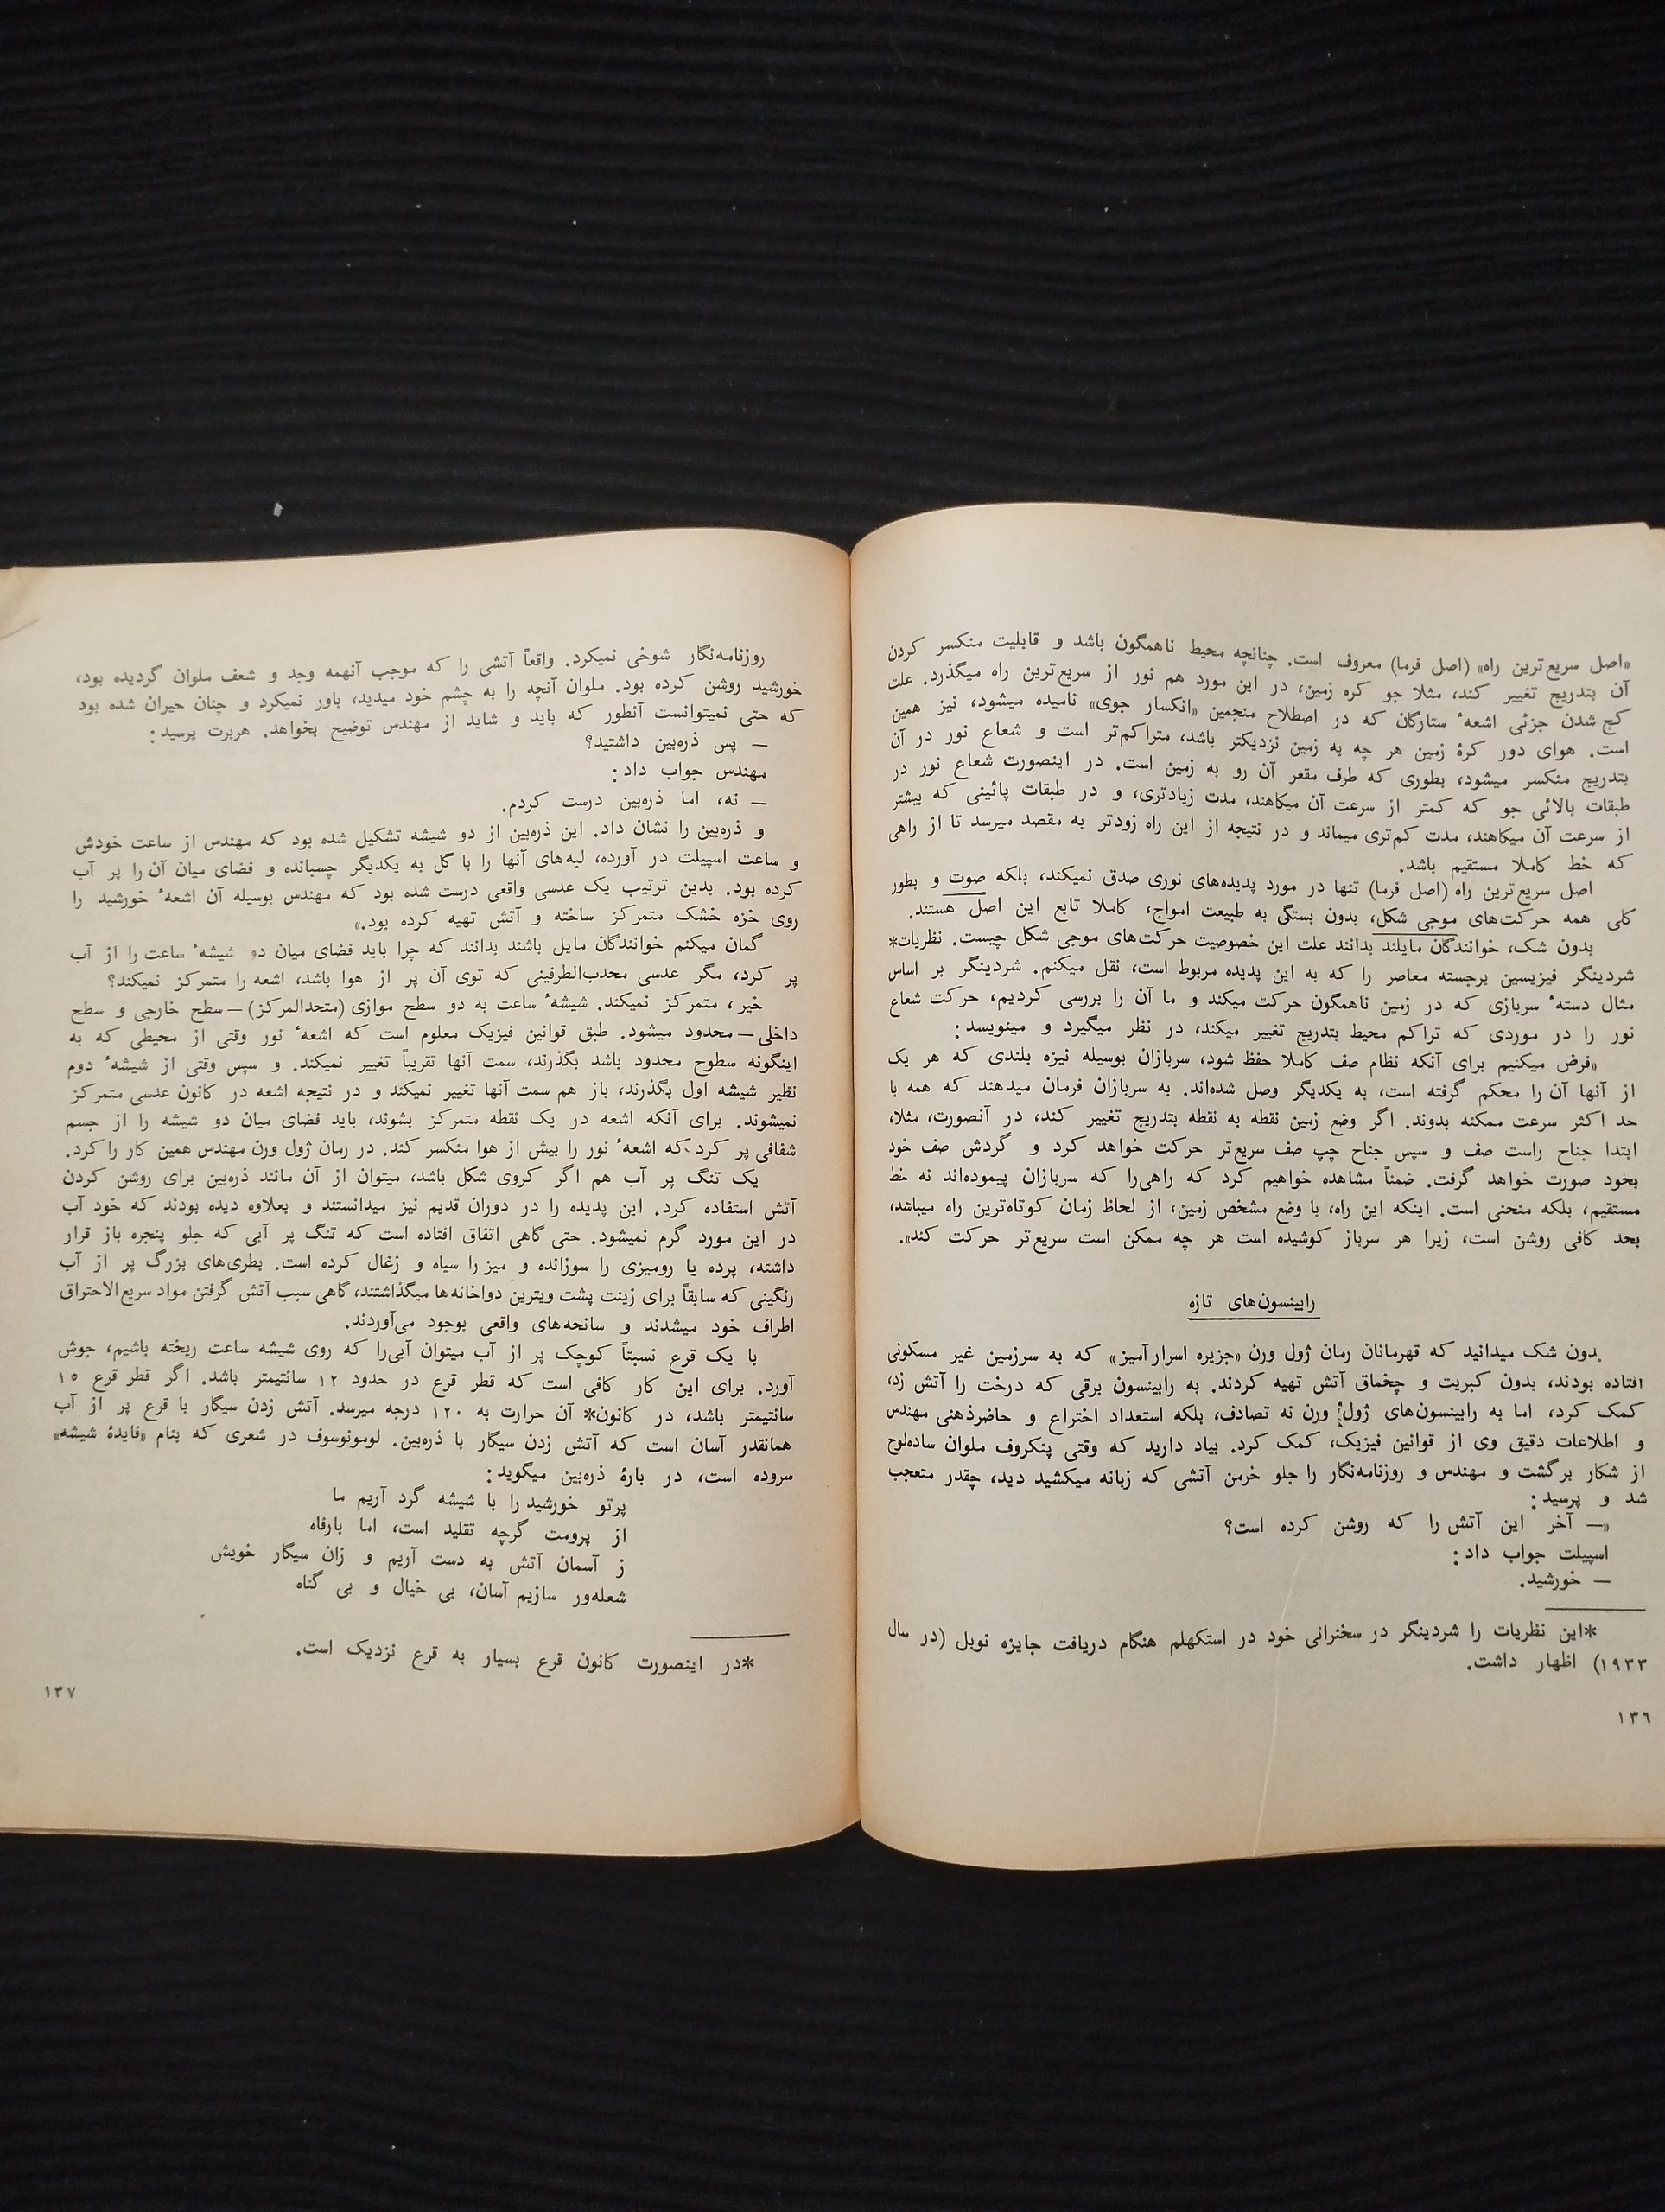 «اصل سریع‌ترین راه» (اصل فرما) معروف است. چنانچه محیط ناهمگون باشد و قابلیت منکسر کردن
آن بتدریج تغییر کند، مثلا جو کره زمین، در این مورد هم نور از سریع‌ترین راه میگذرد. علت
کج شدن جزئی اشعهٔ ستارگان که در اصطلاح منجمین «انکسار جوی» نامیده میشود، نیز همین
است. هوای دور کرهٔ زمین هر چه به زمین نزدیکتر باشد، متراکم‌تر است و شعاع نور در آن
بتدریج منکسر میشود، بطوری که طرف مقعر آن رو به زمین است. در اینصورت شعاع نور در
طبقات بالائی جو که کمتر از سرعت آن میکاهند، مدت زیادتری، و در طبقات پائینی که بیشتر
از سرعت آن میکاهند، مدت کم‌تری میماند و در نتیجه از این راه زودتر به مقصد میرسد تا از راهی
که خط کاملا مستقیم باشد.
اصل سریع‌ترین راه (اصل فرما) تنها در مورد پدیده‌های نوری صدق نمیکند، بلکه صوت و بطور
کلی همه حرکت‌های موجی شکل، بدون بستگی به طبیعت امواج، کاملا تابع این اصل هستند.
بدون شک، خوانندگان مایلند بدانند علت این خصوصیت حرکت‌های موجی شکل چیست. نظریات*
شردینگر فیزیسین برجسته معاصر را که به این پدیده مربوط است، نقل میکنم. شردینگر بر اساس
مثال دستهٔ سربازی که در زمین ناهمگون حرکت میکند و ما آن را بررسی کردیم، حرکت شعاع
نور را در موردی که تراکم محیط بتدریج تغییر میکند، در نظر میگیرد و مینویسد:
«فرض میکنیم برای آنکه نظام صف کاملا حفظ شود، سربازان بوسیله نیزه بلندی که هر یک
از آنها آن را محکم گرفته است، به یکدیگر وصل شده‌اند. به سربازان فرمان میدهند که همه با
حد اکثر سرعت ممکنه بدوند. اگر وضع زمین نقطه به نقطه بتدریج تغییر کند، در آنصورت، مثلا،
ابتدا جناح راست صف و سپس جناح چپ صف سریع‌تر حرکت خواهد کرد و گردش صف خود
بخود صورت خواهد گرفت. ضمناً مشاهده خواهیم کرد که راهی‌را که سربازان پیموده‌اند نه خط
مستقیم، بلکه منحنی است. اینکه این راه، با وضع مشخص زمین، از لحاظ زمان کوتاه‌ترین راه میباشد،
بحد کافی روشن است، زیرا هر سرباز کوشیده است هر چه ممکن است سریع‌تر حرکت کند».
رابینسون‌های تازه
بدون شک میدانید که قهرمانان رمان ژول ورن «جزیره اسرارآمیز» که به سرزمین غیر مسکونی
افتاده بودند، بدون کبریت و چخماق آتش تهیه کردند. به رابینسون برقی که درخت را آتش زد،
کمک کرد، اما به رابینسون‌های ژول ورن نه تصادف، بلکه استعداد اختراع و حاضرذهنی مهندس
و اطلاعات دقیق وی از قوانین فیزیک، کمک کرد. بیاد دارید که وقتی پنکروف ملوان ساده‌لوح
از شکار برگشت و مهندس و روزنامه‌نگار را جلو خرمن آتشی که زبانه میکشید دید، چقدر متعجب
شد و پرسید:
«— آخر این آتش را که روشن کرده است؟
اسپیلت جواب داد:
— خورشید.
*این نظریات را شردینگر در سخنرانی خود در استکهلم هنگام دریافت جایزه نوبل (در سال
۱۹۳۳) اظهار داشت.
۱۳۶
روزنامه‌نگار شوخی نمیکرد. واقعاً آتشی را که موجب آنهمه وجد و شعف ملوان گردیده بود،
خورشید روشن کرده بود. ملوان آنچه را به چشم خود میدید، باور نمیکرد و چنان حیران شده بود
که حتی نمیتوانست آنطور که باید و شاید از مهندس توضیح بخواهد. هربرت پرسید:
— پس ذره‌بین داشتید؟
مهندس جواب داد:
— نه، اما ذره‌بین درست کردم.
و ذره‌بین را نشان داد. این ذره‌بین از دو شیشه تشکیل شده بود که مهندس از ساعت خودش
و ساعت اسپیلت در آورده، لبه‌های آنها را با گل به یکدیگر چسبانده و فضای میان آن را پر آب
کرده بود. بدین ترتیب یک عدسی واقعی درست شده بود که مهندس بوسیله آن اشعهٔ خورشید را
روی خزه خشک متمرکز ساخته و آتش تهیه کرده بود.»
گمان میکنم خوانندگان مایل باشند بدانند که چرا باید فضای میان دو شیشهٔ ساعت را از آب
پر کرد، مگر عدسی محدب‌الطرفینی که توی آن پر از هوا باشد، اشعه را متمرکز نمیکند؟
خیر، متمرکز نمیکند. شیشهٔ ساعت به دو سطح موازی (متحدالمرکز) — سطح خارجی و سطح
داخلی — محدود میشود. طبق قوانین فیزیک معلوم است که اشعهٔ نور وقتی از محیطی که به
اینگونه سطوح محدود باشد بگذرند، سمت آنها تقریباً تغییر نمیکند. و سپس وقتی از شیشهٔ دوم
نظیر شیشه اول بگذرند، باز هم سمت آنها تغییر نمیکند و در نتیجه اشعه در کانون عدسی متمرکز
نمیشوند. برای آنکه اشعه در یک نقطه متمرکز بشوند، باید فضای میان دو شیشه را از جسم
شفافی پر کرد که اشعهٔ نور را بیش از هوا منکسر کند. در رمان ژول ورن مهندس همین کار را کرد.
یک تنگ پر آب هم اگر کروی شکل باشد، میتوان از آن مانند ذره‌بین برای روشن کردن
آتش استفاده کرد. این پدیده را در دوران قدیم نیز میدانستند و بعلاوه دیده بودند که خود آب
در این مورد گرم نمیشود. حتی گاهی اتفاق افتاده است که تنگ پر آبی که جلو پنجره باز قرار
داشته، پرده یا رومیزی را سوزانده و میز را سیاه و زغال کرده است. بطری‌های بزرگ پر از آب
رنگینی که سابقاً برای زینت پشت ویترین دواخانه‌ها میگذاشتند، گاهی سبب آتش گرفتن مواد سریع‌الاحتراق
اطراف خود میشدند و سانحه‌های واقعی بوجود می‌آوردند.
با یک قرع نسبتاً کوچک پر از آب میتوان آبی‌را که روی شیشه ساعت ریخته باشیم، جوش
آورد. برای این کار کافی است که قطر قرع در حدود ۱۲ سانتیمتر باشد. اگر قطر قرع ۱۵
سانتیمتر باشد، در کانون* آن حرارت به ۱۲۰ درجه میرسد. آتش زدن سیگار با قرع پر از آب
همانقدر آسان است که آتش زدن سیگار با ذره‌بین. لومونوسوف در شعری که بنام «فایدهٔ شیشه»
سروده است، در بارهٔ ذره‌بین میگوید:
پرتو خورشید را با شیشه گرد آریم ما
از پرومت گرچه تقلید است، اما بارفاه
ز آسمان آتش به دست آریم و زان سیگار خویش
شعله‌ور سازیم آسان، بی خیال و بی گناه
*در اینصورت کانون قرع بسیار به قرع نزدیک است.
۱۳۷